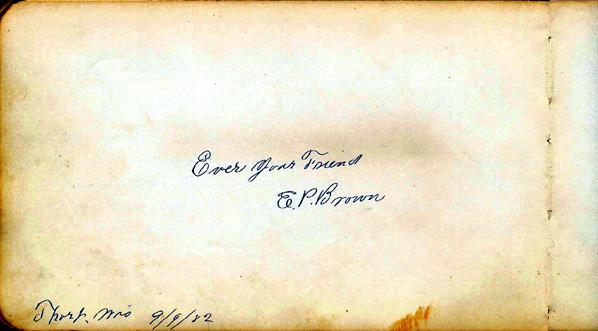 Ever Your Friend
E. P. Brown
Thorp. Wis 9/9/82